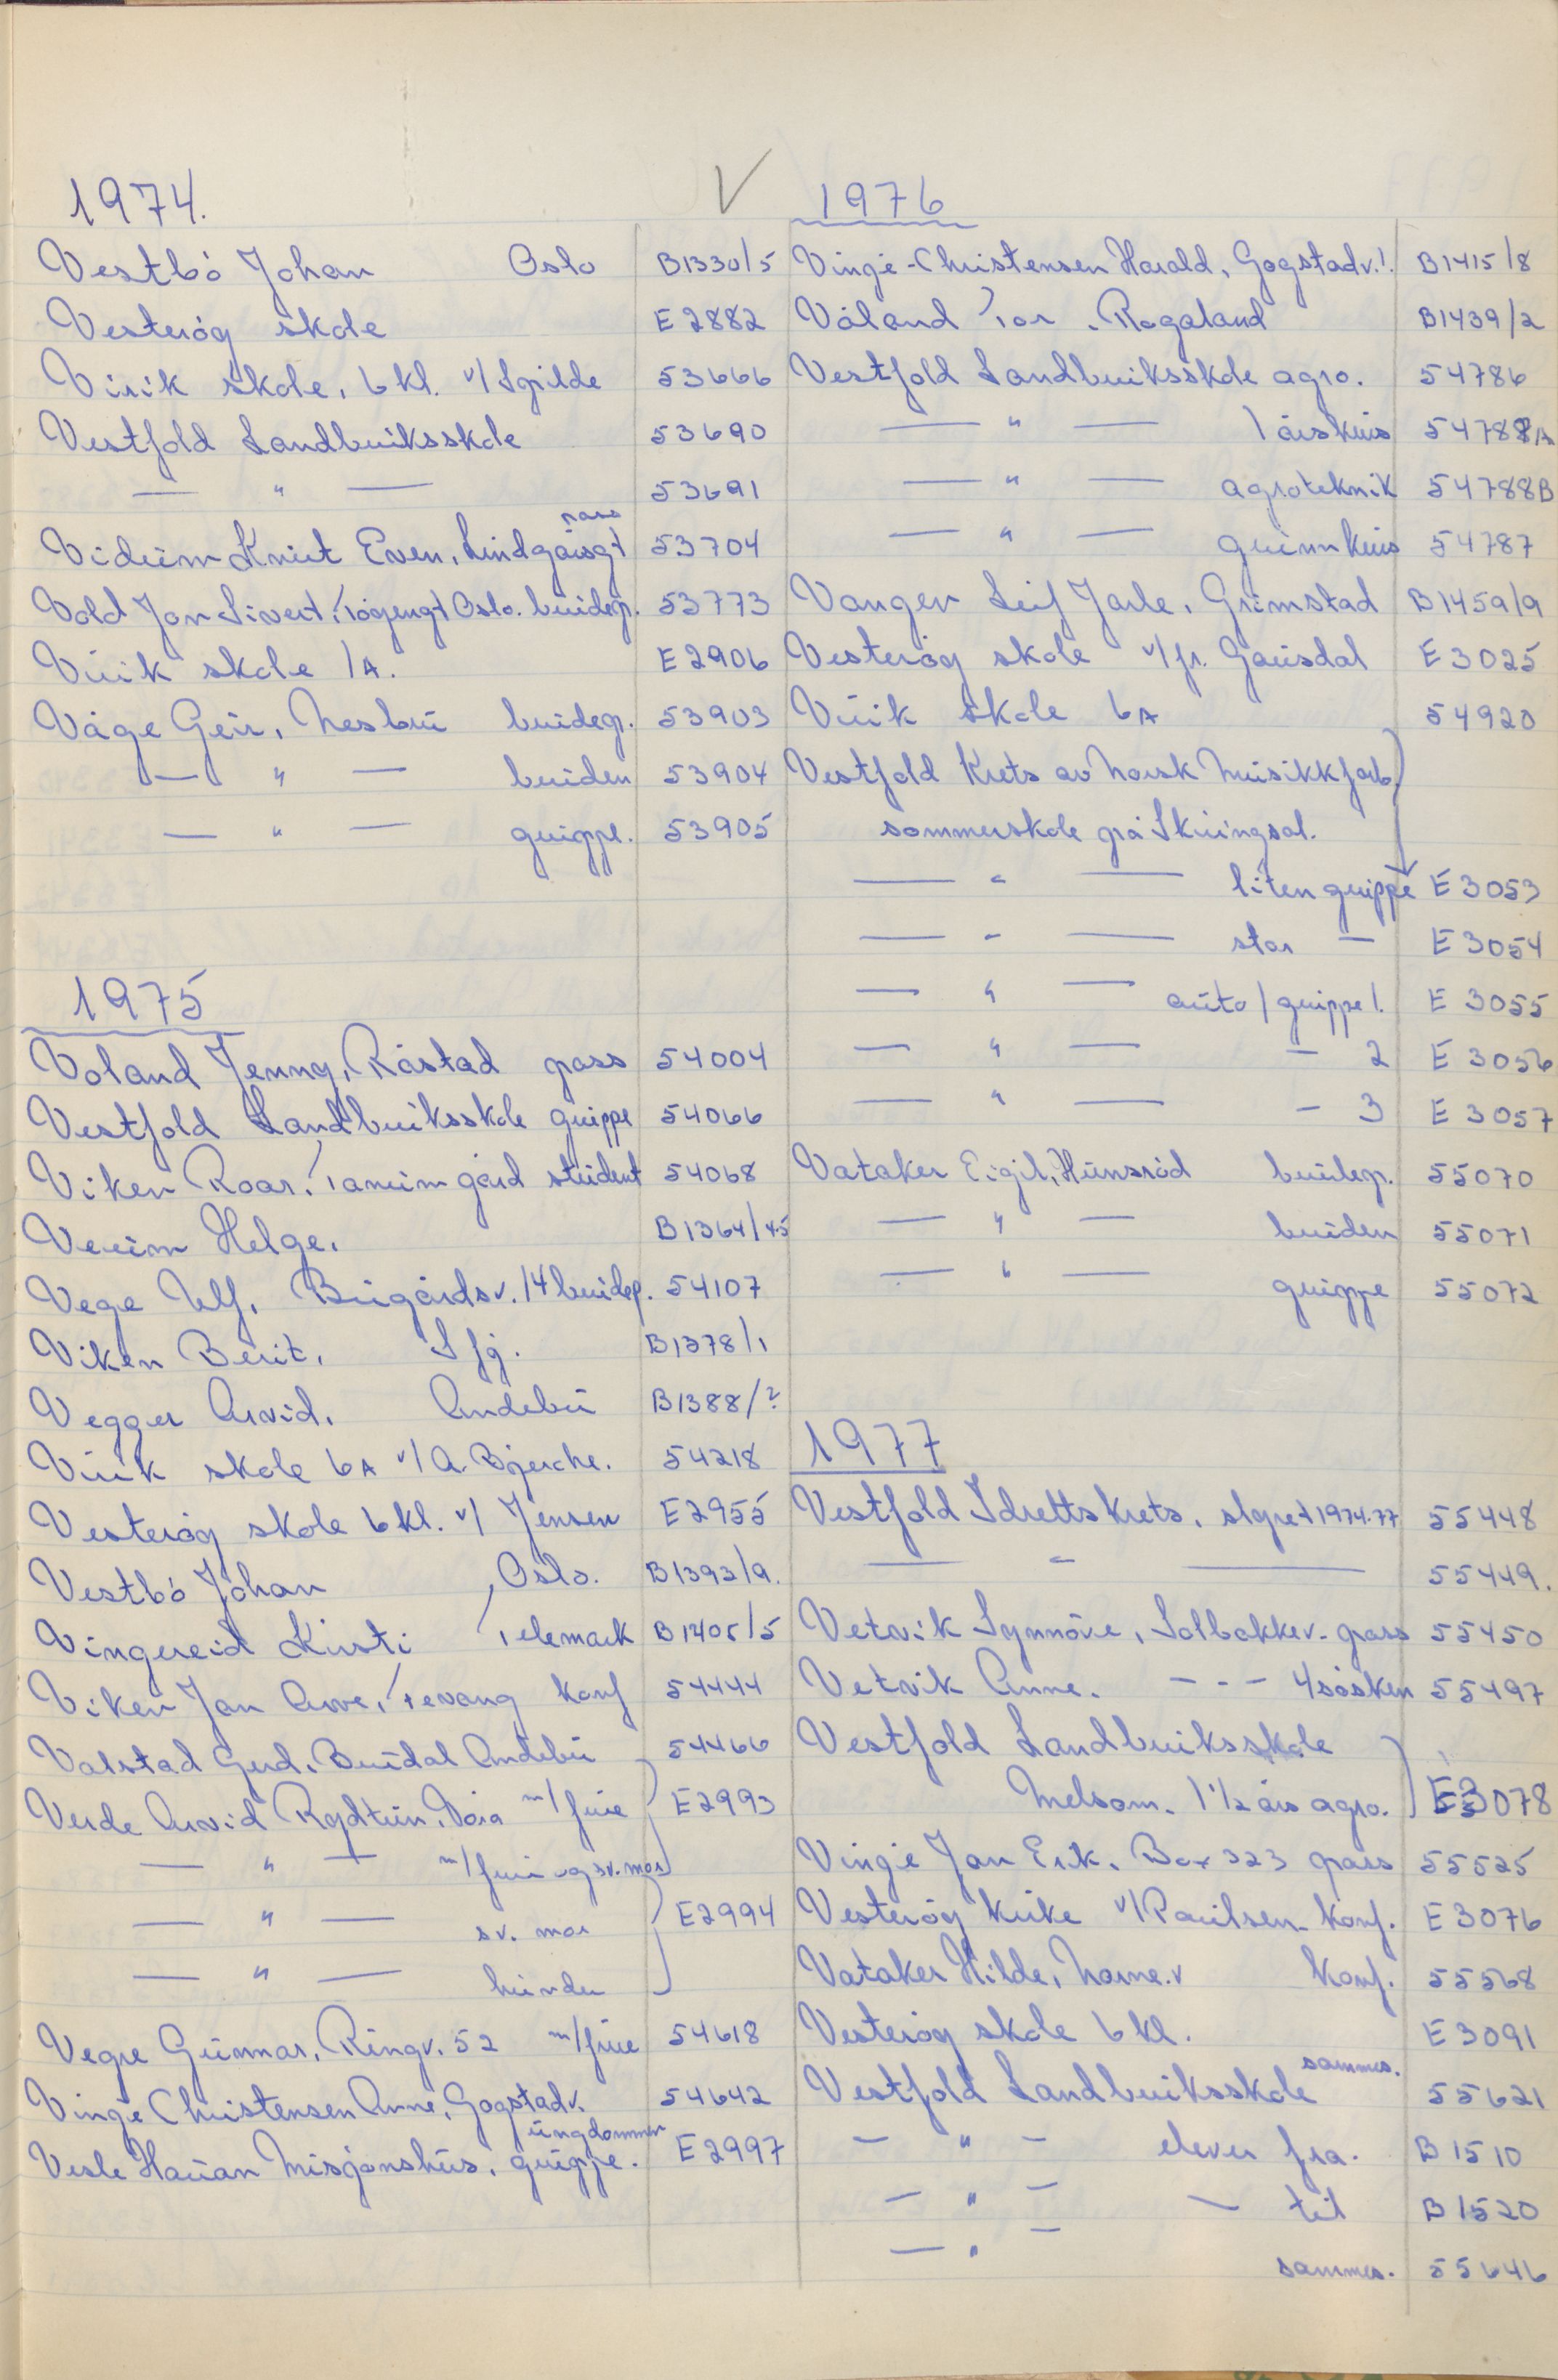 V
1974.
Vestbö Johan Oslo B1330/5
Vesteröy skole E2882
Virik skole, 6 kl. v/ Sgilde 53666
Vestfold Landbruksskole 53690
— " — 53691
pass
Vidum Knut Even, Lindgårsgt 53704
Vold Jon Sivert, Tösjengt Oslo. brudep. 53773
Virik skole 1A. E2906
Våge Geir, Nesbru brudep. 53903
— " — bruden 53904
— " — gruppe. 53905
1975
Voland Jenny, Råstad pass 54004
Vestfold Landbruksskole gruppe 54066
Viken Roar, Tanum gård student 54068
Verum Helge. B1364/45
Vege Ulf, Bugårdsv. 14 brudep. 54107
Viken Berit, Sfj. B1378/1
Vegger Arvid, Andebu B1388/?
Virik skole 6A v/ A. Bjerche. 54218
Vesteröy skole 6 kl. v/ Jensen E2955
Vestbö Johan, Oslo. B1393/9.
Vingereid Kirsti Telemark B1405/5
Viken Jan Arve, Tevang konf 54444
Valstad Gerd, Brudal Andebu 54466
Verde Arvid Rydtun, Våra m/ frue E2993
— " — m/ frue og sv. mor
— " — sv. mor E2994
— " — hunder
Vegre Gunnar, Ringv. 52 m/ frue 54618
Vinge Christensen Anne, Gogstadv. 54642
ungdommer
Vesle Hauan Misjonshus, gruppe. E2997
1976
Vinge-Christensen Harald, Gogstadv.! B1415/8
Våland Tor, Rogaland B1439/2
Vestfold Landbruksskole agro. 54786
— " — 1 årskurs 54788A
— " — agroteknik 54788B
— " — grunnkurs 54787
Vanger Leif Jarle, Grimstad B1459/9
Vesteröy skole v/ fr. Gausdal E3025
Virik skole 6A 54920
Vestfold Krets av Norsk Musikkforb.
sommerskole på Skiringsal.
— " — liten gruppe E3053
— " — stor — E3054
— " — auto/gruppe 1. E3055
— " — - 2 E3056
— " — - 3 E3057
Vataker Eigil, Hunsröd brudep. 55070
— " — bruden 55071
— " — gruppe 55072
1977
Vestfold Idrettskrets, styret 1974-77 55448
— " — 55449.
Vetvik Synnöve, Solbakkev. pass 55450
Vetvik Anne. - - - 4 sösken 55497
Vestfold Landbruksskole
Melsom. 1 1/2 års agro. E3078
Vinje Jan Erik, Box 323 pass 55525
Vesteröy kirke v/ Paulsen konf. E3076
Vataker Hilde, Norne.v konf. 55568
Vesteröy skole 6 kl. E3091
Vestfold Landbruksskole sammes. 55621
— " — elever fra. B1510
— " — — til B1520
— " — sammes. 55646